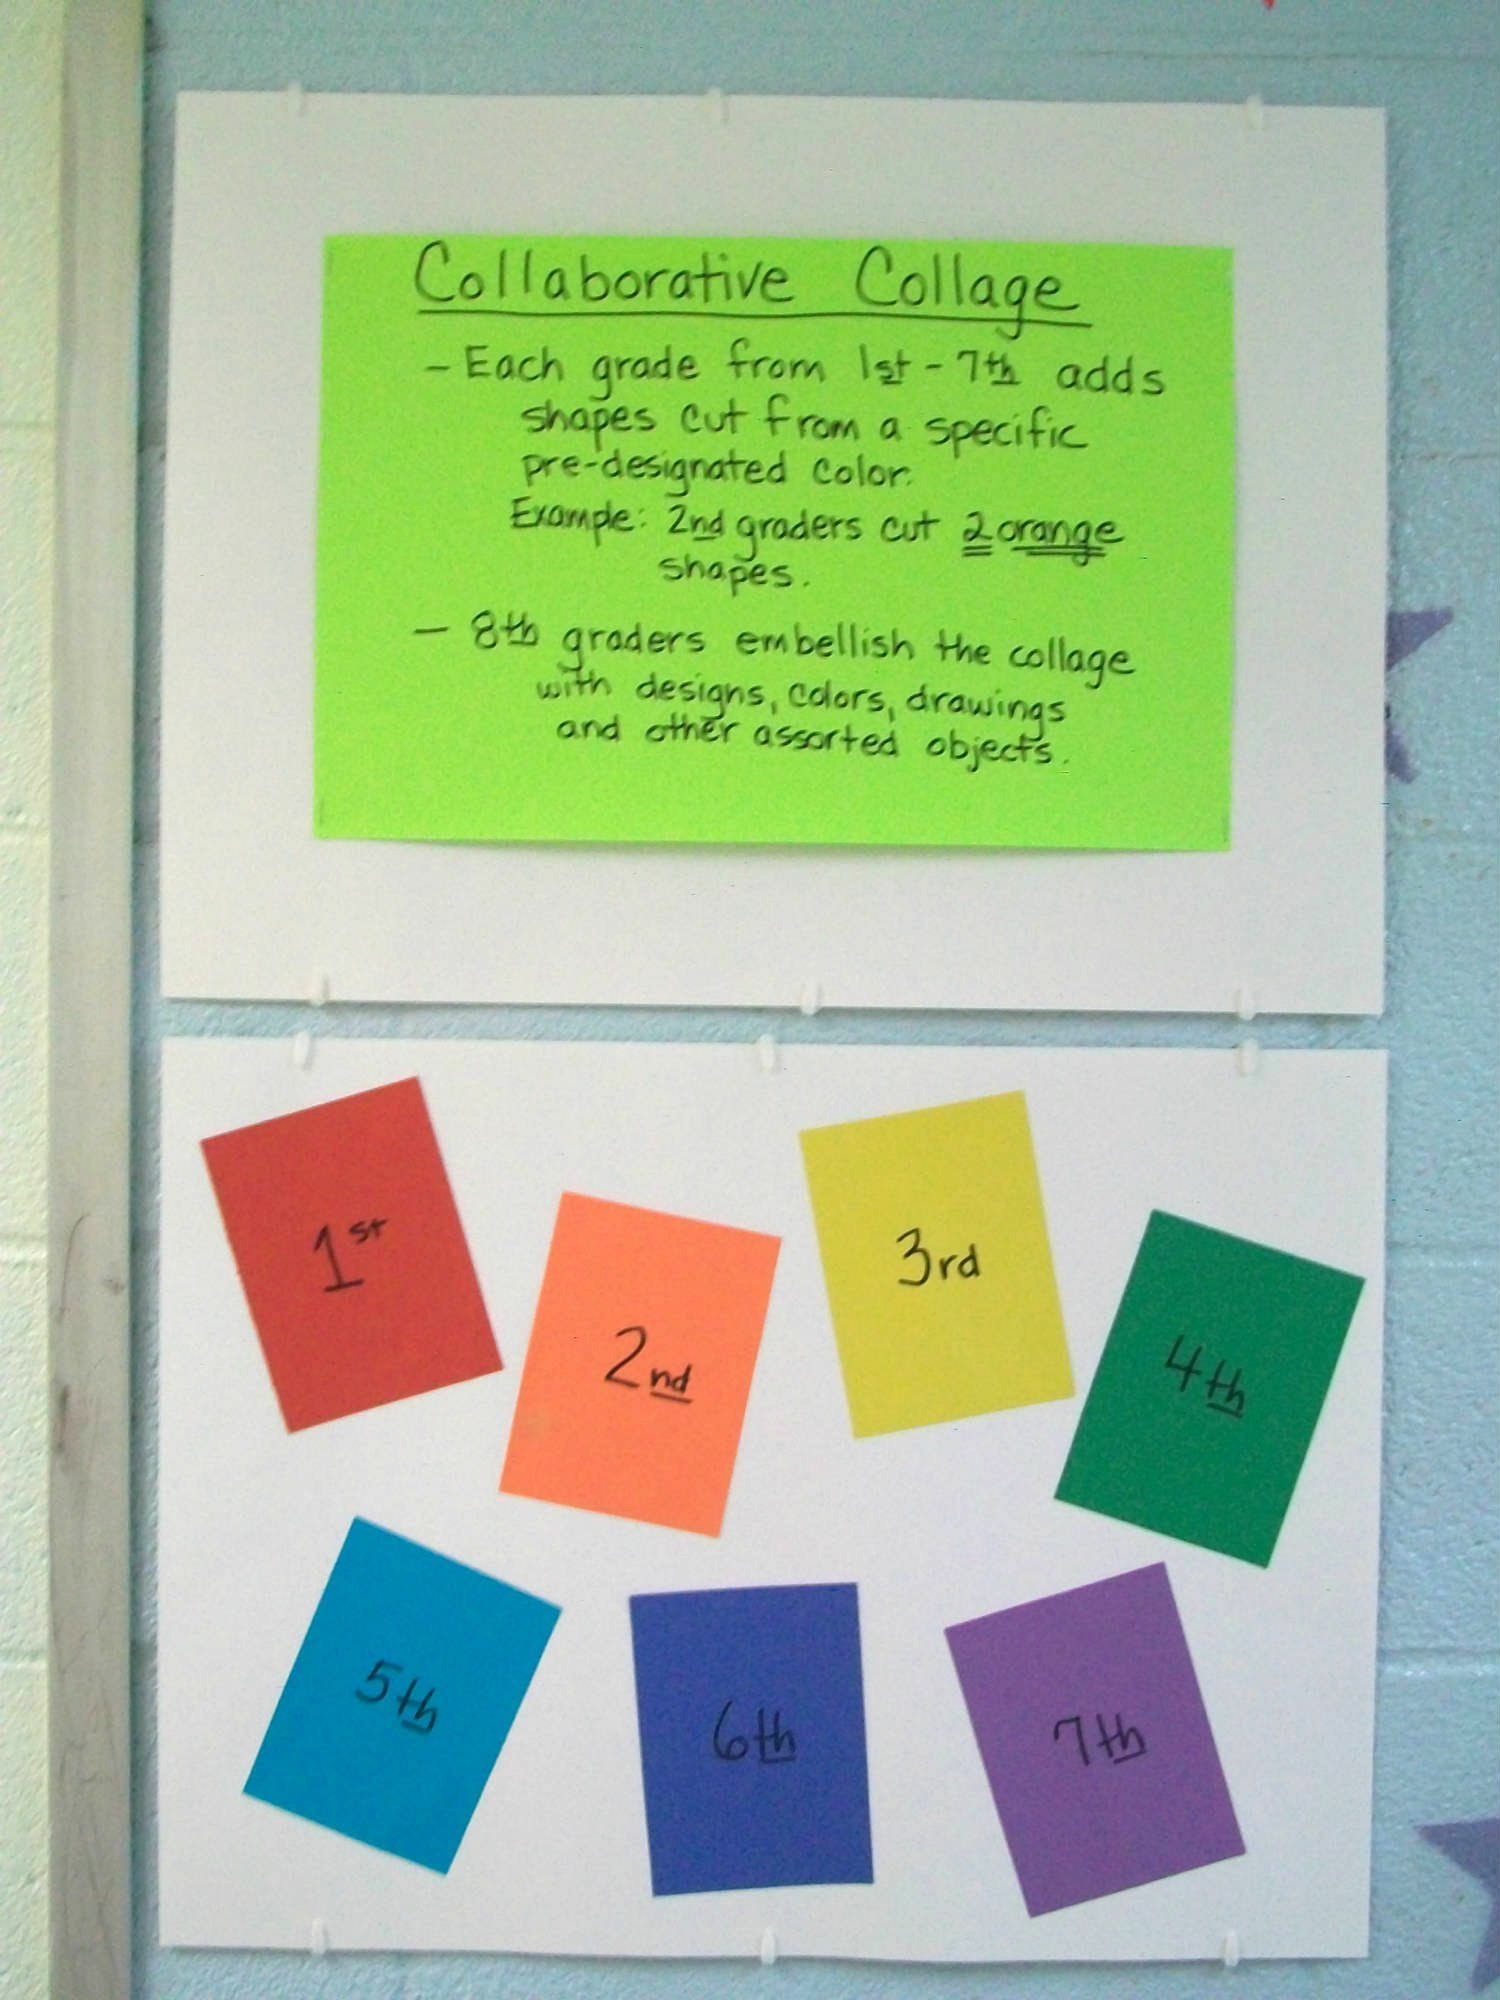 Collaborative Collage
- Each grade from 1st - 7th adds
shapes cut from a specific
pre-designated color.
Example: 2nd graders cut 2 orange
shapes.
- 8th graders embellish the collage
with designs, colors, drawings
and other assorted objects.
1st
2nd
3rd
4th
5th
6th
7th